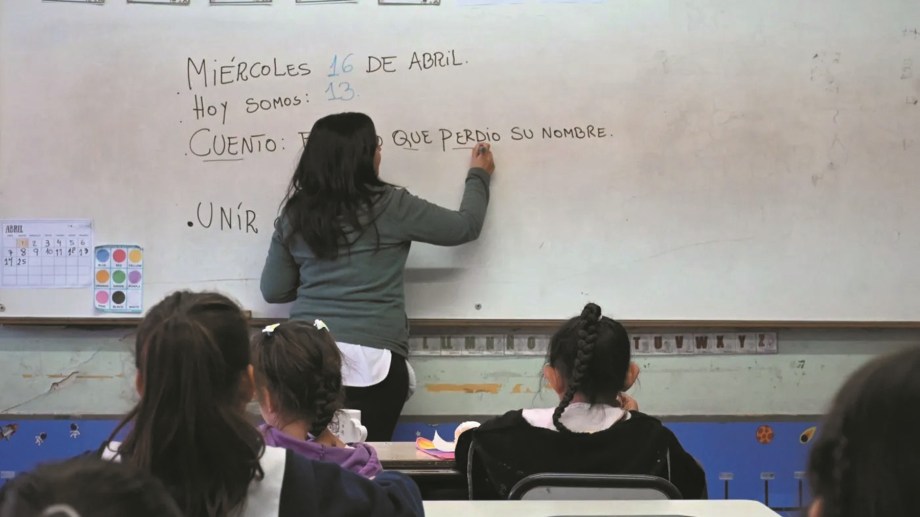 MIÉRCOLES 16 DE ABRIL.
HOY SOMOS: 13.
CUENTO: QUE PERDIO SU NOMBRE.
UNÍR
ABRIL
1 2 3 4 5 6
7 8 9 10 11
14
T U V W X Y Z